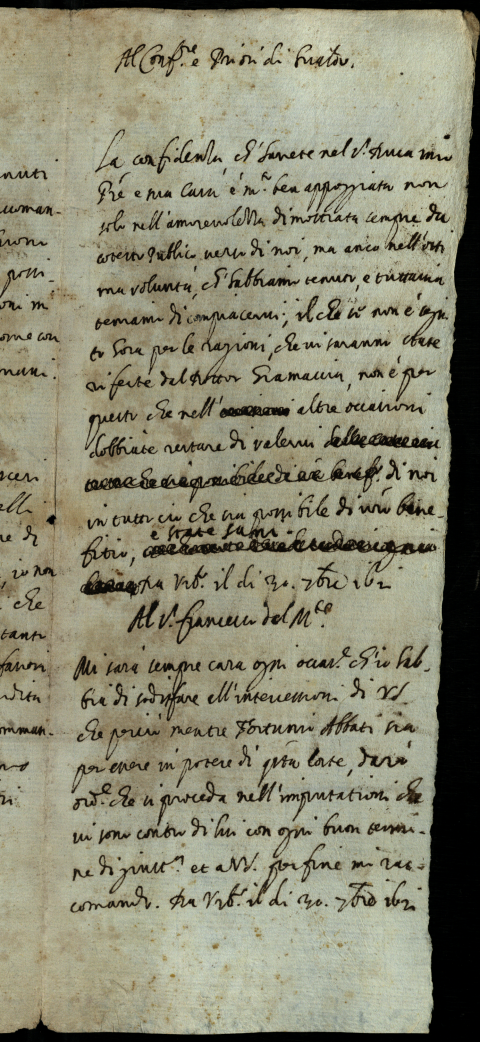 Al Conf.re e Priori di Gualdo.
La confidenza ch'havete nel s.r Duca mio
P̃re e sua Casa è m.to ben appoggiata non
solo nell'amorevolezza dimostrata sempre da
cotesto Publico verso di noi, ma anco nell'otti
ma volontà, ch'habbiamo tenuto, e tuttavia
teniamo di compiacervi; il che se non è segui
to hora per le ragioni, che vi saranno state
riferte dal Dottor Gramaccia, non è per
questo che nell' altre occasioni
dobbiate restare di valervi
di noi
in tutto ciò che sia possibile di v̄ro bene-
fitio, e state sani.
Da Urb.o il di 30. 7bre 1621
Al s.r Francesco dal M.te
Mi sarà sempre cara ogni occas.e ch'io hab-
bia di sodisfare all'intercessioni di VS.
che perciò mentre Fortunio Abbati sia
per essere in potere di q̄sta Corte, darò
ord.e che si proceda nell'imputationi che
vi sono contro di lui con ogni buon termi-
ne di giust.a et a VS. per fine mi rac-
comando. Da Urb.o il di 30. 7bre 1621
nuti
acoman-
possi-
oni in
orne con
sceri
elli
re di
, io non
che
tanti
favori
omman-